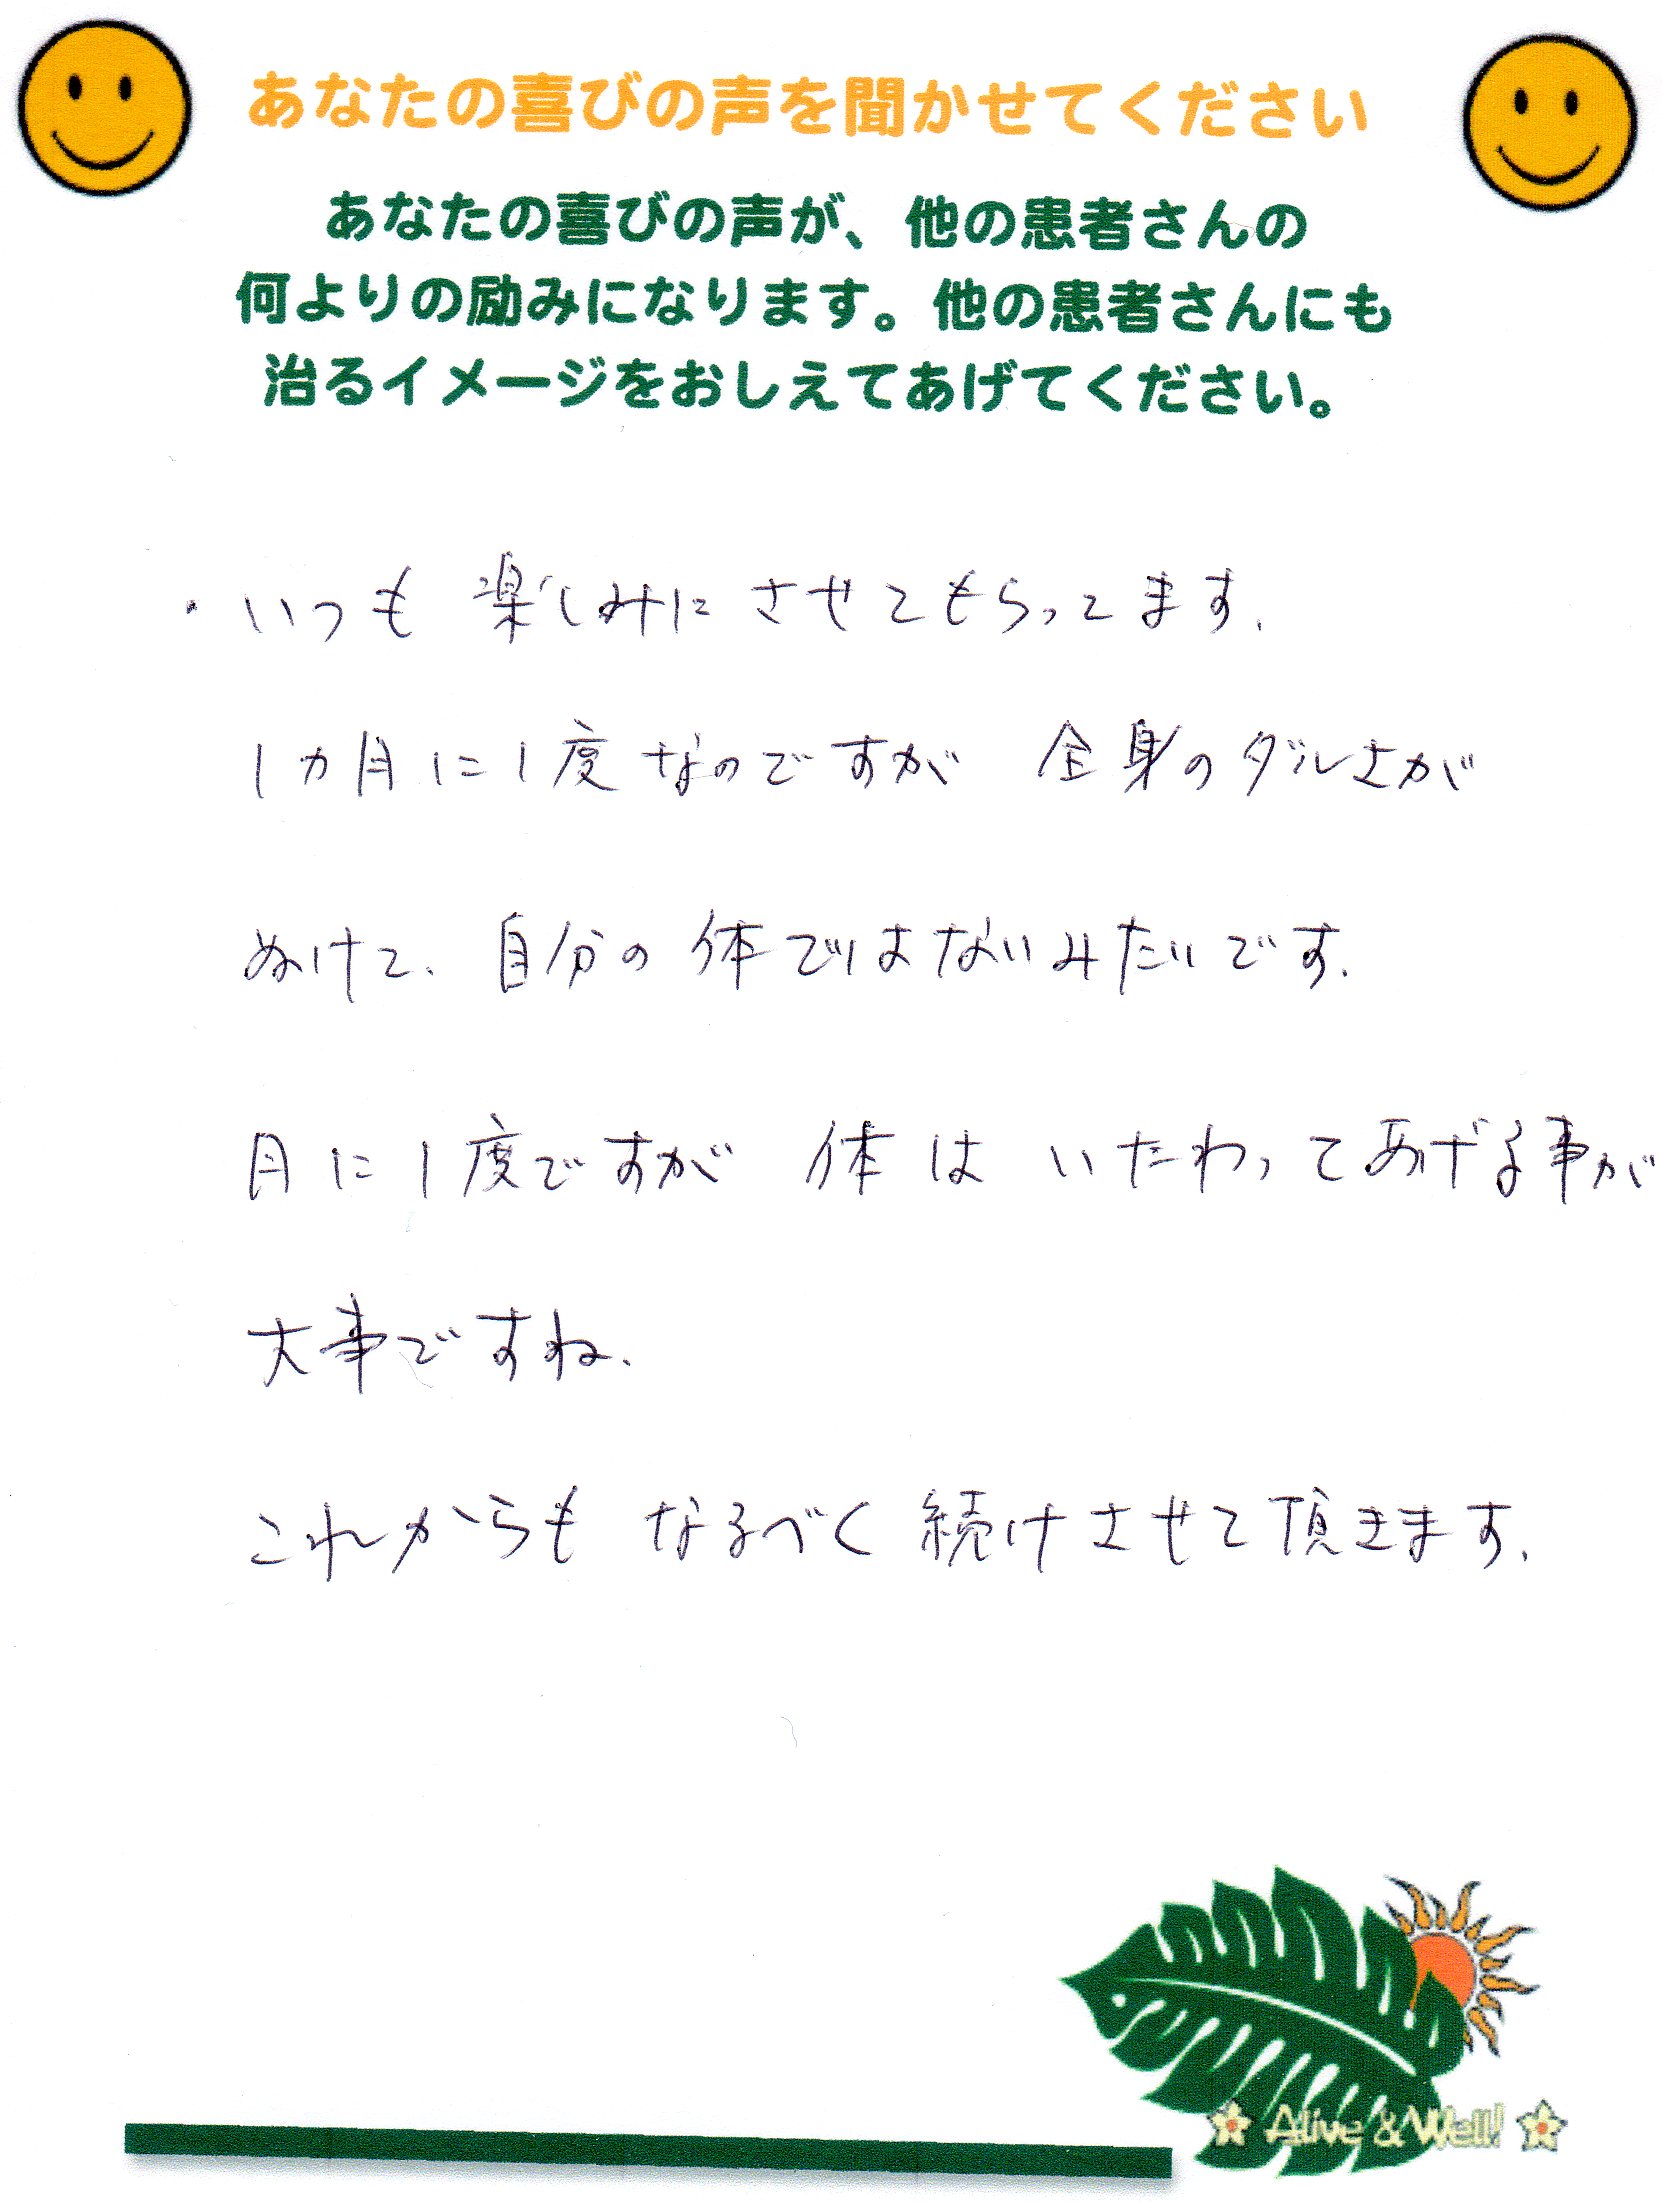 あなたの喜びの声を聞かせてください
あなたの喜びの声が、他の患者さんの
何よりの励みになります。他の患者さんにも
治るイメージをおしえてあげてください。
・いつも楽しみにさせてもらってます.
1カ月に1度なのですが 全身のダルさが
ぬけて、自分の体ではないみたいです.
月に1度ですが 体は いたわってあげる事が
大事ですね.
これからも なるべく 続けさせて頂きます.
Alive & Well!